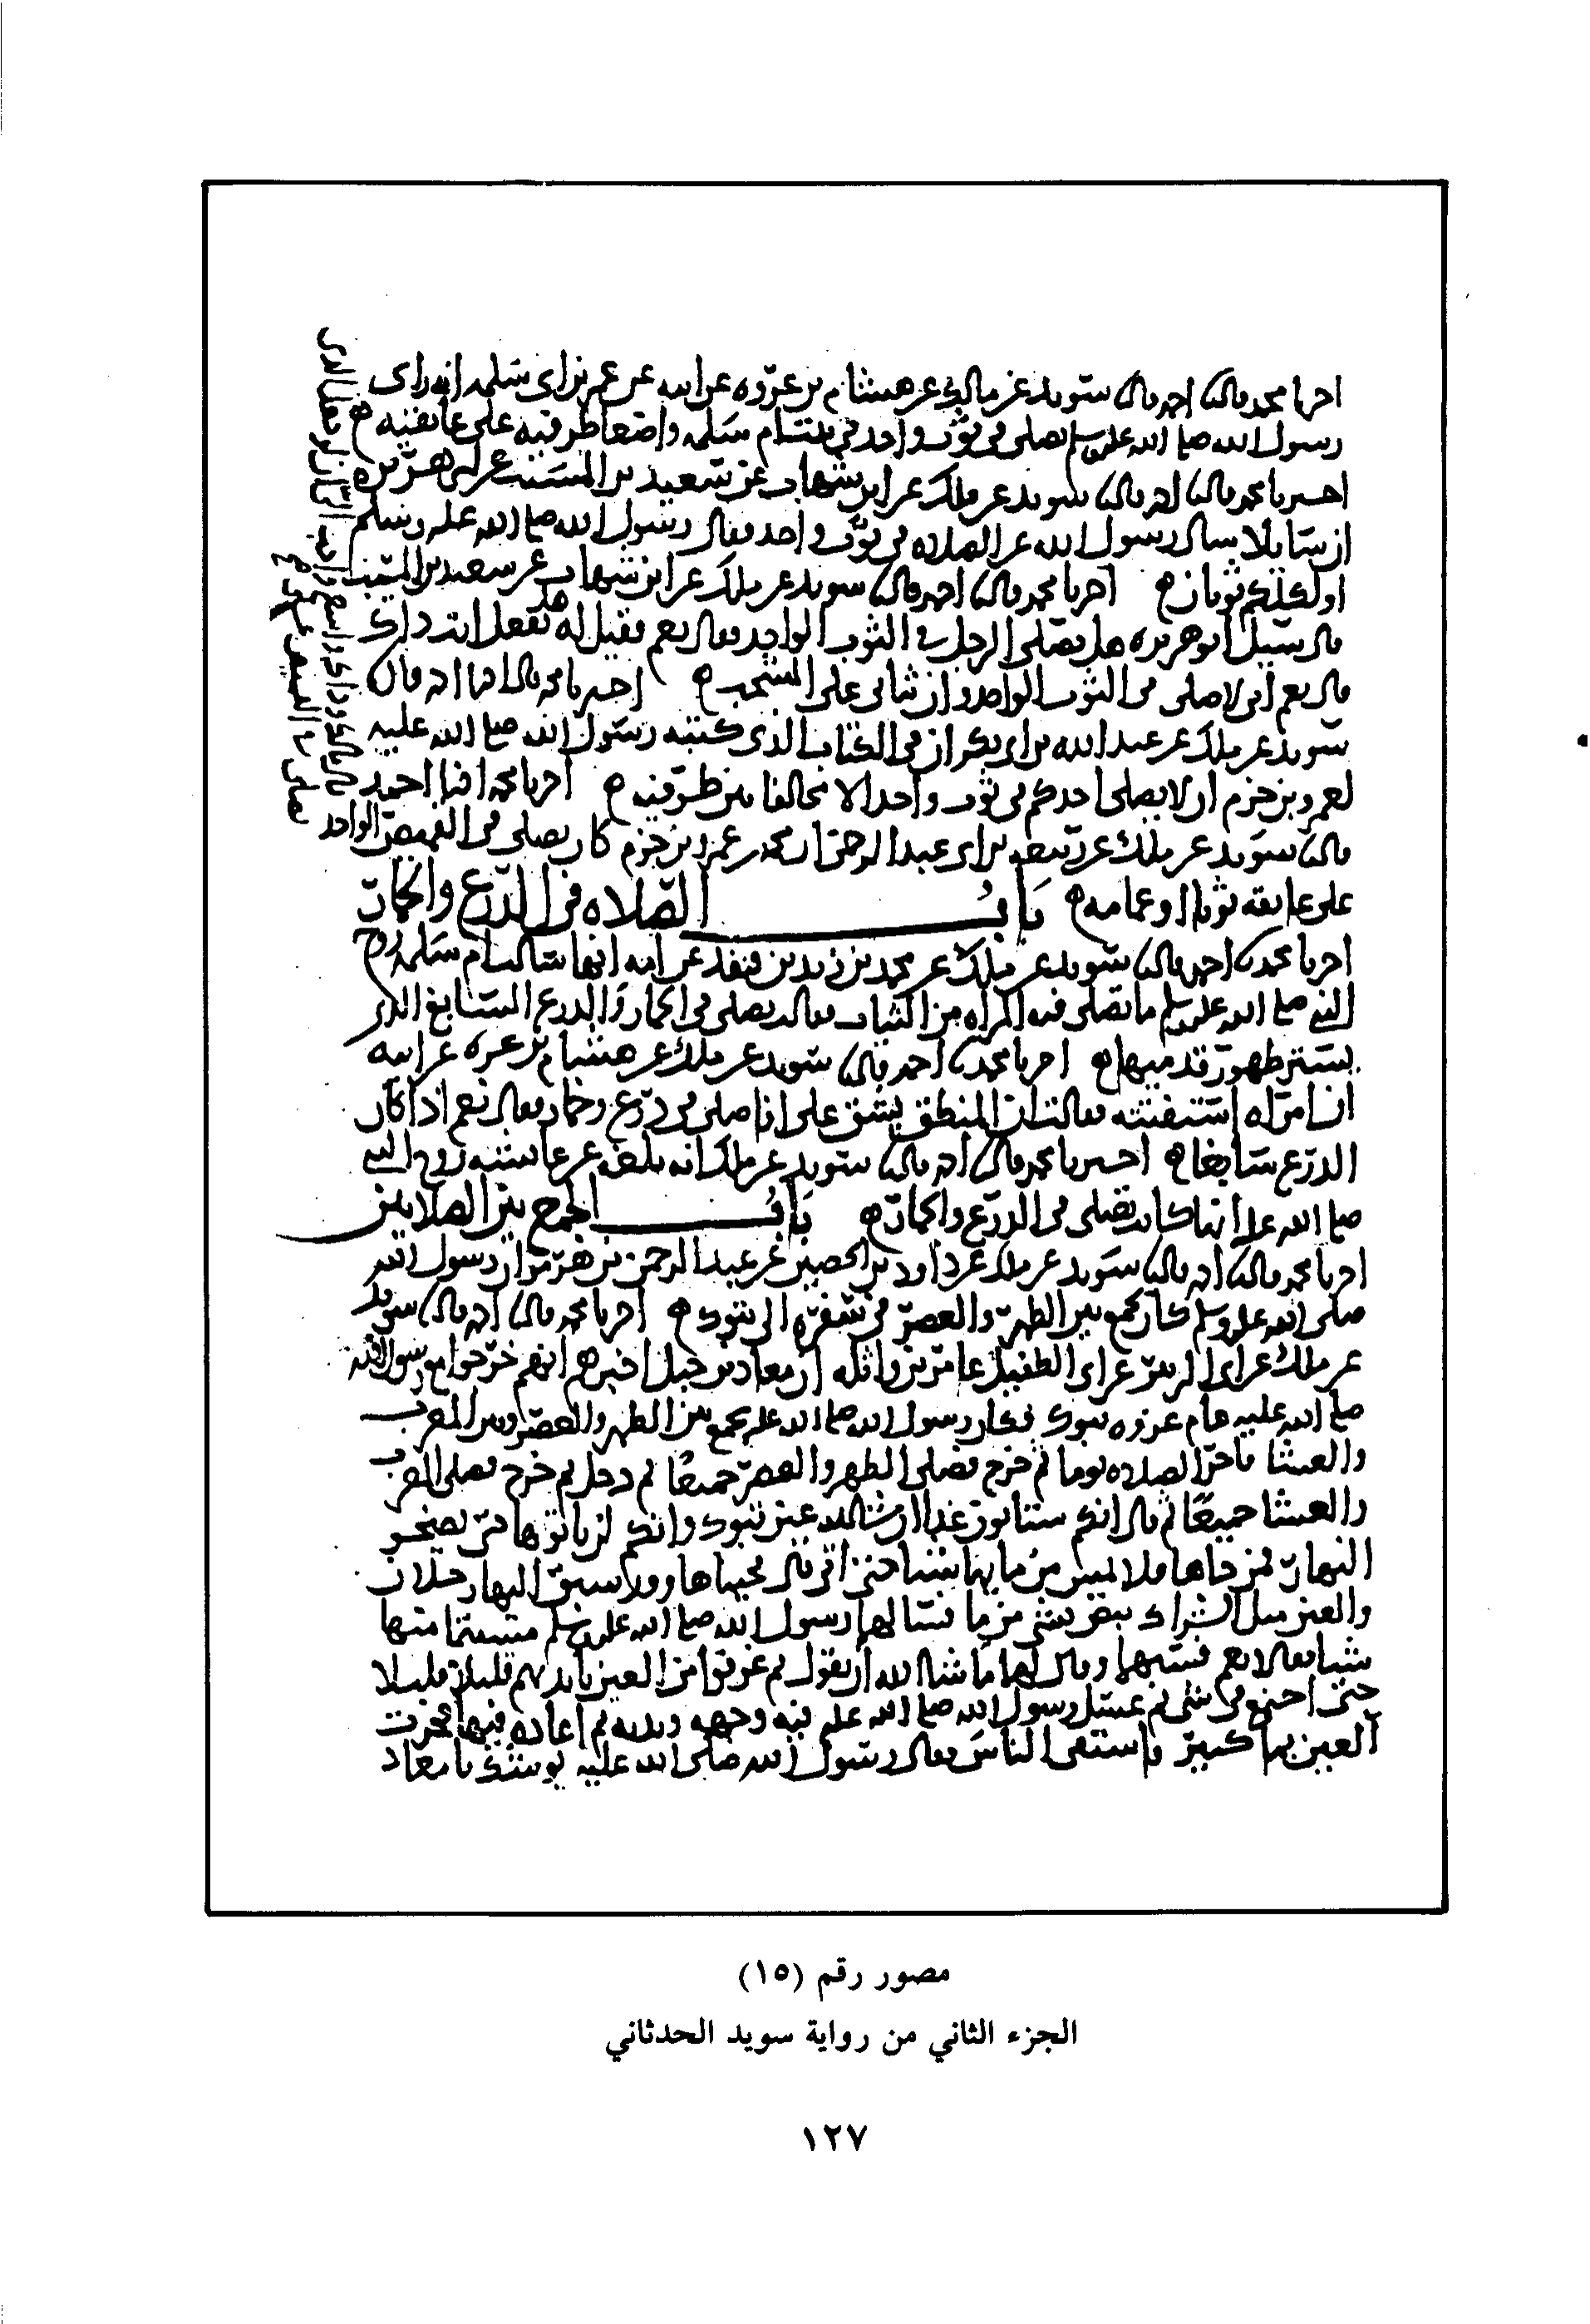 اخبرنا محمد قال نا احمد قال نا سويد عن مالك عن هشام بن عروه عن ابيه عن عمر بن ابي سلمه انه راى
رسول الله صلى الله عليه وسلم يصلي في ثوب واحد في بيت ام سلمه واضعا طرفيه على عاتقيه ه
اخبرنا محمد قال نا احمد قال نا سويد عن ملك عن ابن شهاب عن سعيد بن المسيب عن ابي هريره
ان سايلا سال رسول الله عن الصلاه في ثوب واحد فقال رسول الله صلى الله عليه وسلم
اولكلكم ثوبان ه اخبرنا محمد قال نا احمد قال نا سويد عن ملك عن ابن شهاب عن سعيد بن المسيب
قال سيل ابو هريره هل يصلي الرجل في الثوب الواحد فقال نعم فقيل له هل تفعل انت ذاك
قال نعم اني لاصلي في الثوب الواحد وان ثيابي على المشجب ه اخبرنا محمد قال انا احمد قال نا
سويد عن ملك عن عبد الله بن ابي بكر ان في الكتاب الذي كتبه رسول الله صلى الله عليه
لعمرو بن حزم ان لا يصلي احدكم في ثوب واحد الا مخالفا بين طرفيه ه اخبرنا محمد انبا احمد
قال نا سويد عن ملك عن ربيعه بن ابي عبد الرحمن ان محمد بن عمرو بن حزم كان يصلي في القميص الواحد
على عاتقه ثوبا او عمامه ه باب الصلاه في الدرع والخمار
اخبرنا محمد نا احمد قال نا سويد عن ملك عن محمد بن زيد بن قنفذ عن امه انها سالت ام سلمه زوج
النبي صلى الله عليه وسلم ما تصلي فيه المراه من الثياب فقالت تصلي في الخمار والدرع السابغ الذي
يستر ظهور قدميها ه اخبرنا محمد نا احمد قال نا سويد عن ملك عن هشام بن عروه عن ابيه
ان امراه استفتته فقالت ان المنطق يشق علي افاصلي في درع وخمار فقال نعم اذا كان
الدرع سابغا ه اخبرنا محمد قال نا احمد قال نا سويد عن ملك انه بلغه عن عائشه زوج النبي
صلى الله عليه انها كانت تصلي في الدرع والخمار ه باب الجمع بين الصلاتين
اخبرنا محمد قال نا احمد قال نا سويد عن ملك عن داود بن الحصين عن عبد الرحمن بن هرمز ان رسول الله
صلى الله عليه وسلم كان يجمع بين الظهر والعصر في سفره الى تبوك ه اخبرنا محمد قال نا احمد قال نا سويد
عن ملك عن ابي الزبير عن ابي الطفيل عامر بن واثله ان معاذ بن جبل اخبرهم انهم خرجوا مع رسول الله
صلى الله عليه عام غزوه تبوك فكان رسول الله صلى الله عليه يجمع بين الظهر والعصر وبين المغرب
والعشا فاخر الصلاه يوما ثم خرج فصلى الظهر والعصر جميعا ثم دخل ثم خرج فصلى المغرب
والعشا جميعا ثم قال انكم ستاتون غدا ان شا الله عين تبوك وانكم لن تاتوها حتى يضحي
النهار فمن جاها فلا يمس من مايها شيا حتى اتي قال فجيناها وقد سبق اليها رجلان
والعين مثل الشراك تبض بشي من ما فسالهما رسول الله صلى الله عليه وسلم مسستما منها
شيا فقالا نعم فسبهما وقال لهما ما شا الله ان يقول ثم غرفوا من العين بايديهم قليلا قليلا
حتى اجتمع في شي ثم غسل رسول الله صلى الله عليه فيه وجهه ويديه ثم اعاده فيها فجرت
العين بما كبير فاستقى الناس فقال رسول الله صلى الله عليه يوشك يا معاذ
مصور رقم (١٥)
الجزء الثاني من رواية سويد الحدثاني
١٢٧